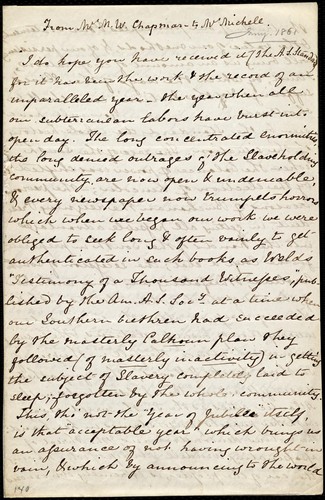 From Mrs M. W. Chapman – to Mr Michell.
Jany. 1861
"I do hope you have received it (the A.S. Standard)
for it has been the work & the record of an
unparalleled year – the year when all
our subterranean labors have burst into
open day. The long concentrated enormities,
the long denied outrages of the Slaveholding
Community are now open & undeniable,
& every newspaper now trumpets horrors
which when we began our work we were
obliged to seek long & often vainly to get
authenticated in such books as Welds
"Testimony of a Thousand Witnesses," pub-
lished by the Am. A. S. Socy. at a time when
our Southern brethren had succeeded
by the masterly Calhoun plan they
followed (of masterly inactivity) in getting
the subject of Slavery completely laid to
sleep, & forgotten by the whole community.
This, tho' not the Year of Jubilee itself,
is that acceptable year which brings us
an assurance of not having wrought in
vain, & which by announcing to the world